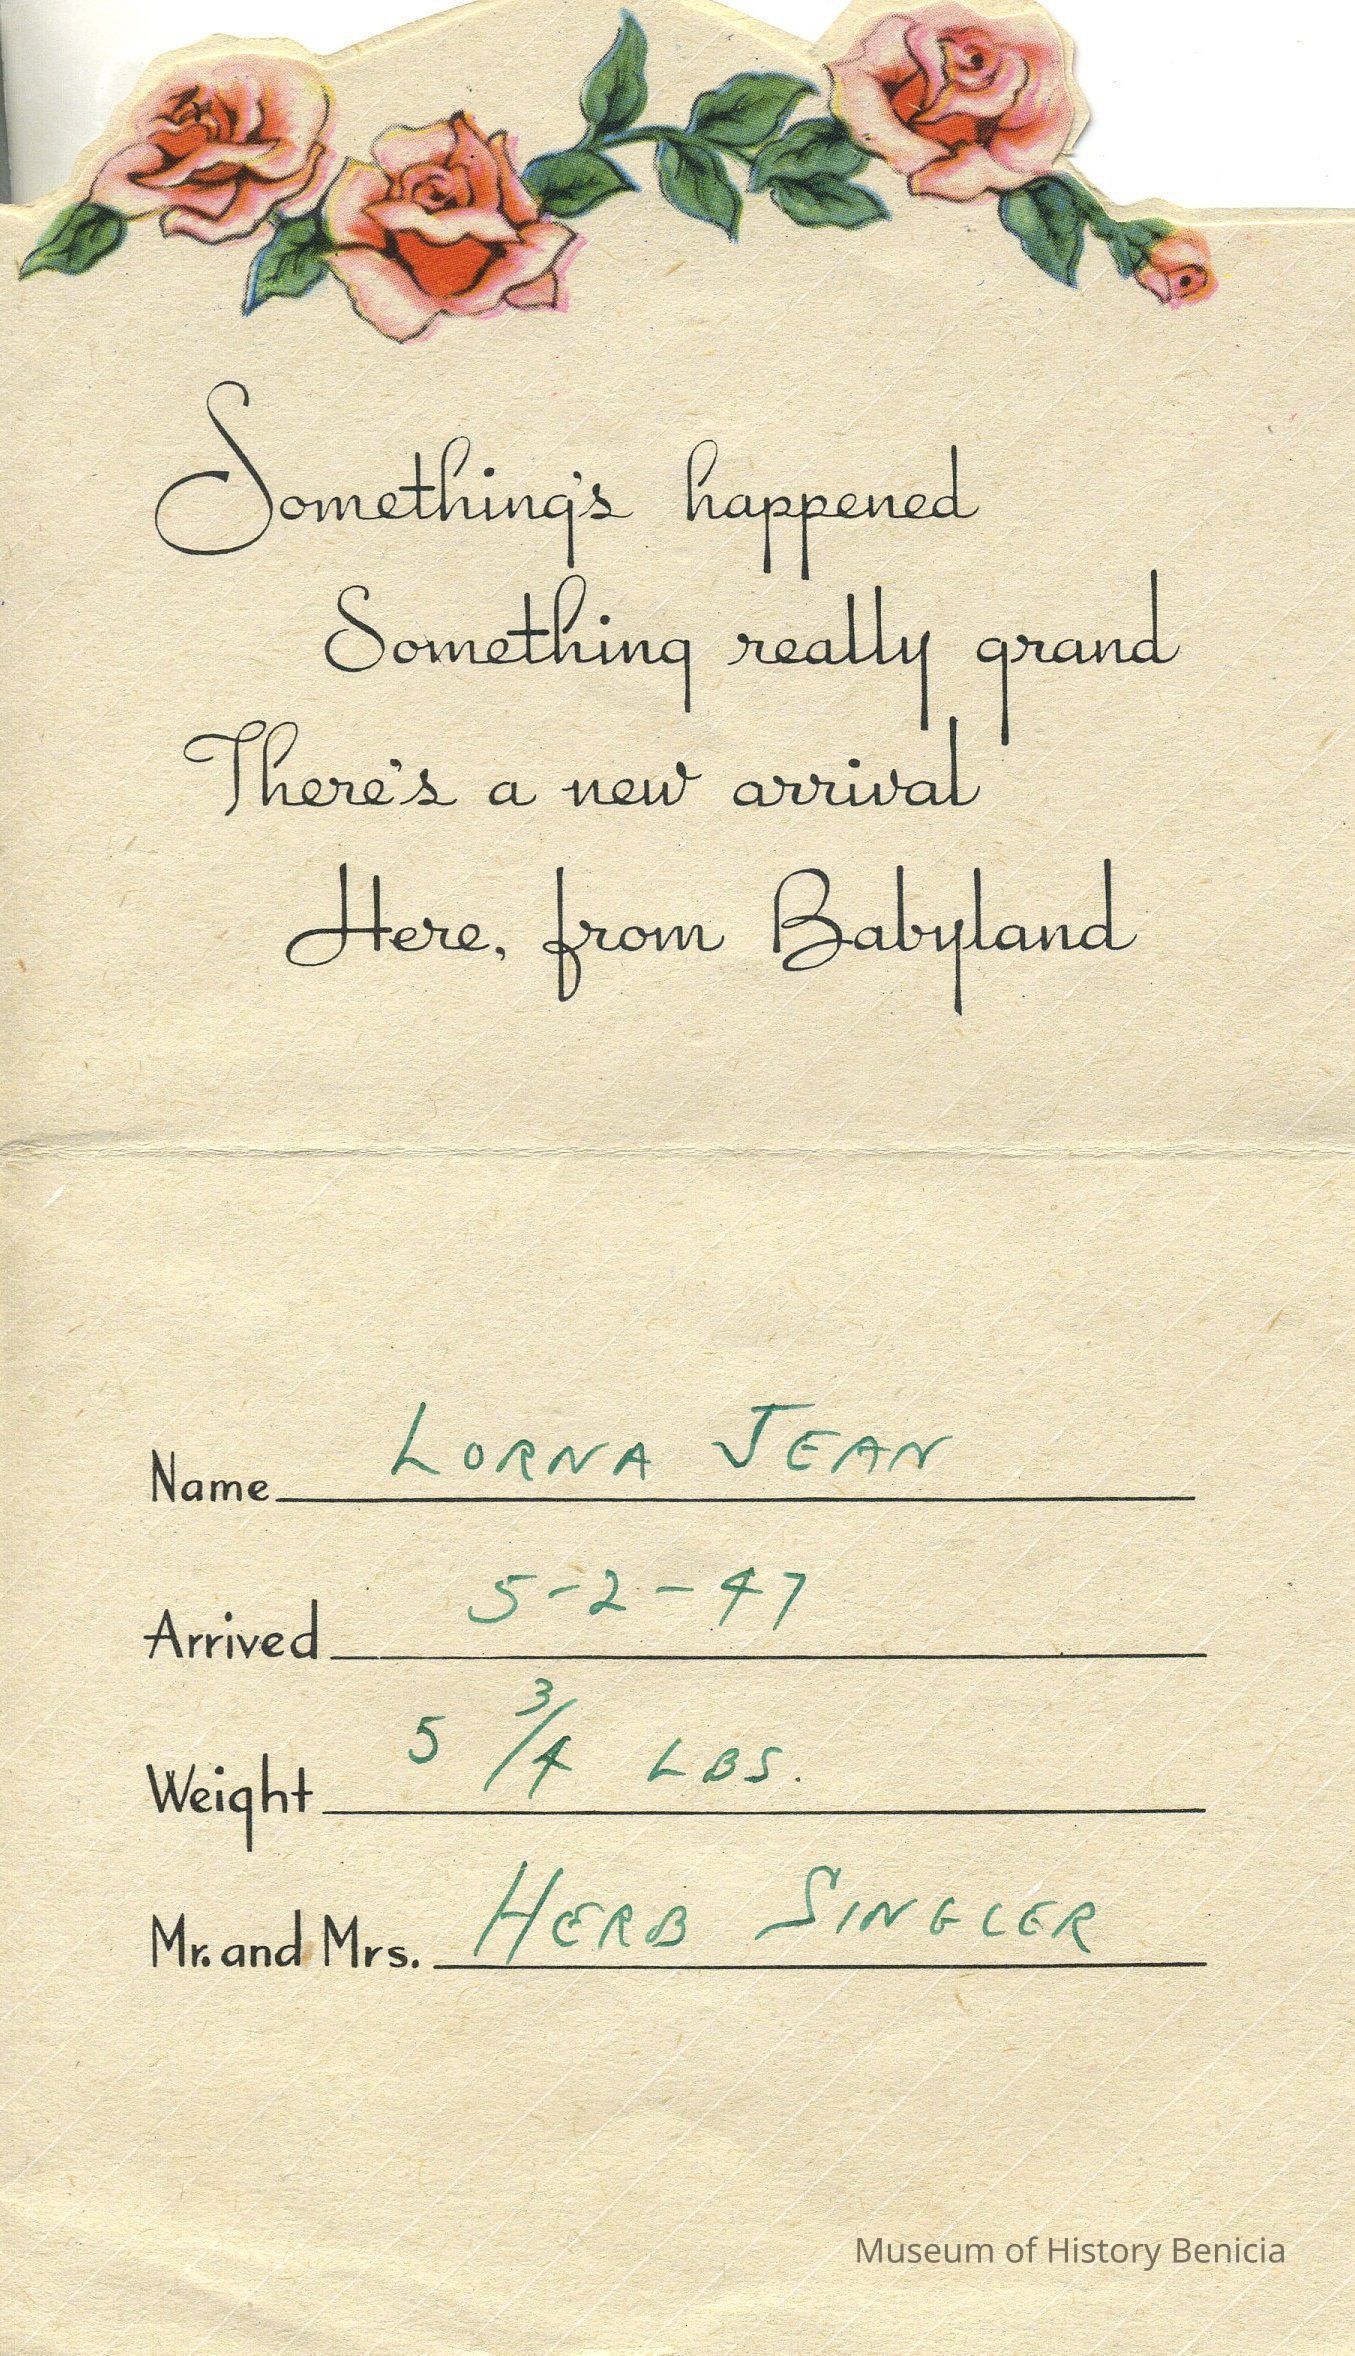 Something's happened
Something really grand
There's a new arrival
Here, from Babyland
Name LORNA JEAN
Arrived 5-2-47
Weight 5 3/4 LBS.
Mr. and Mrs. HERB SINGLER
Museum of History Benicia